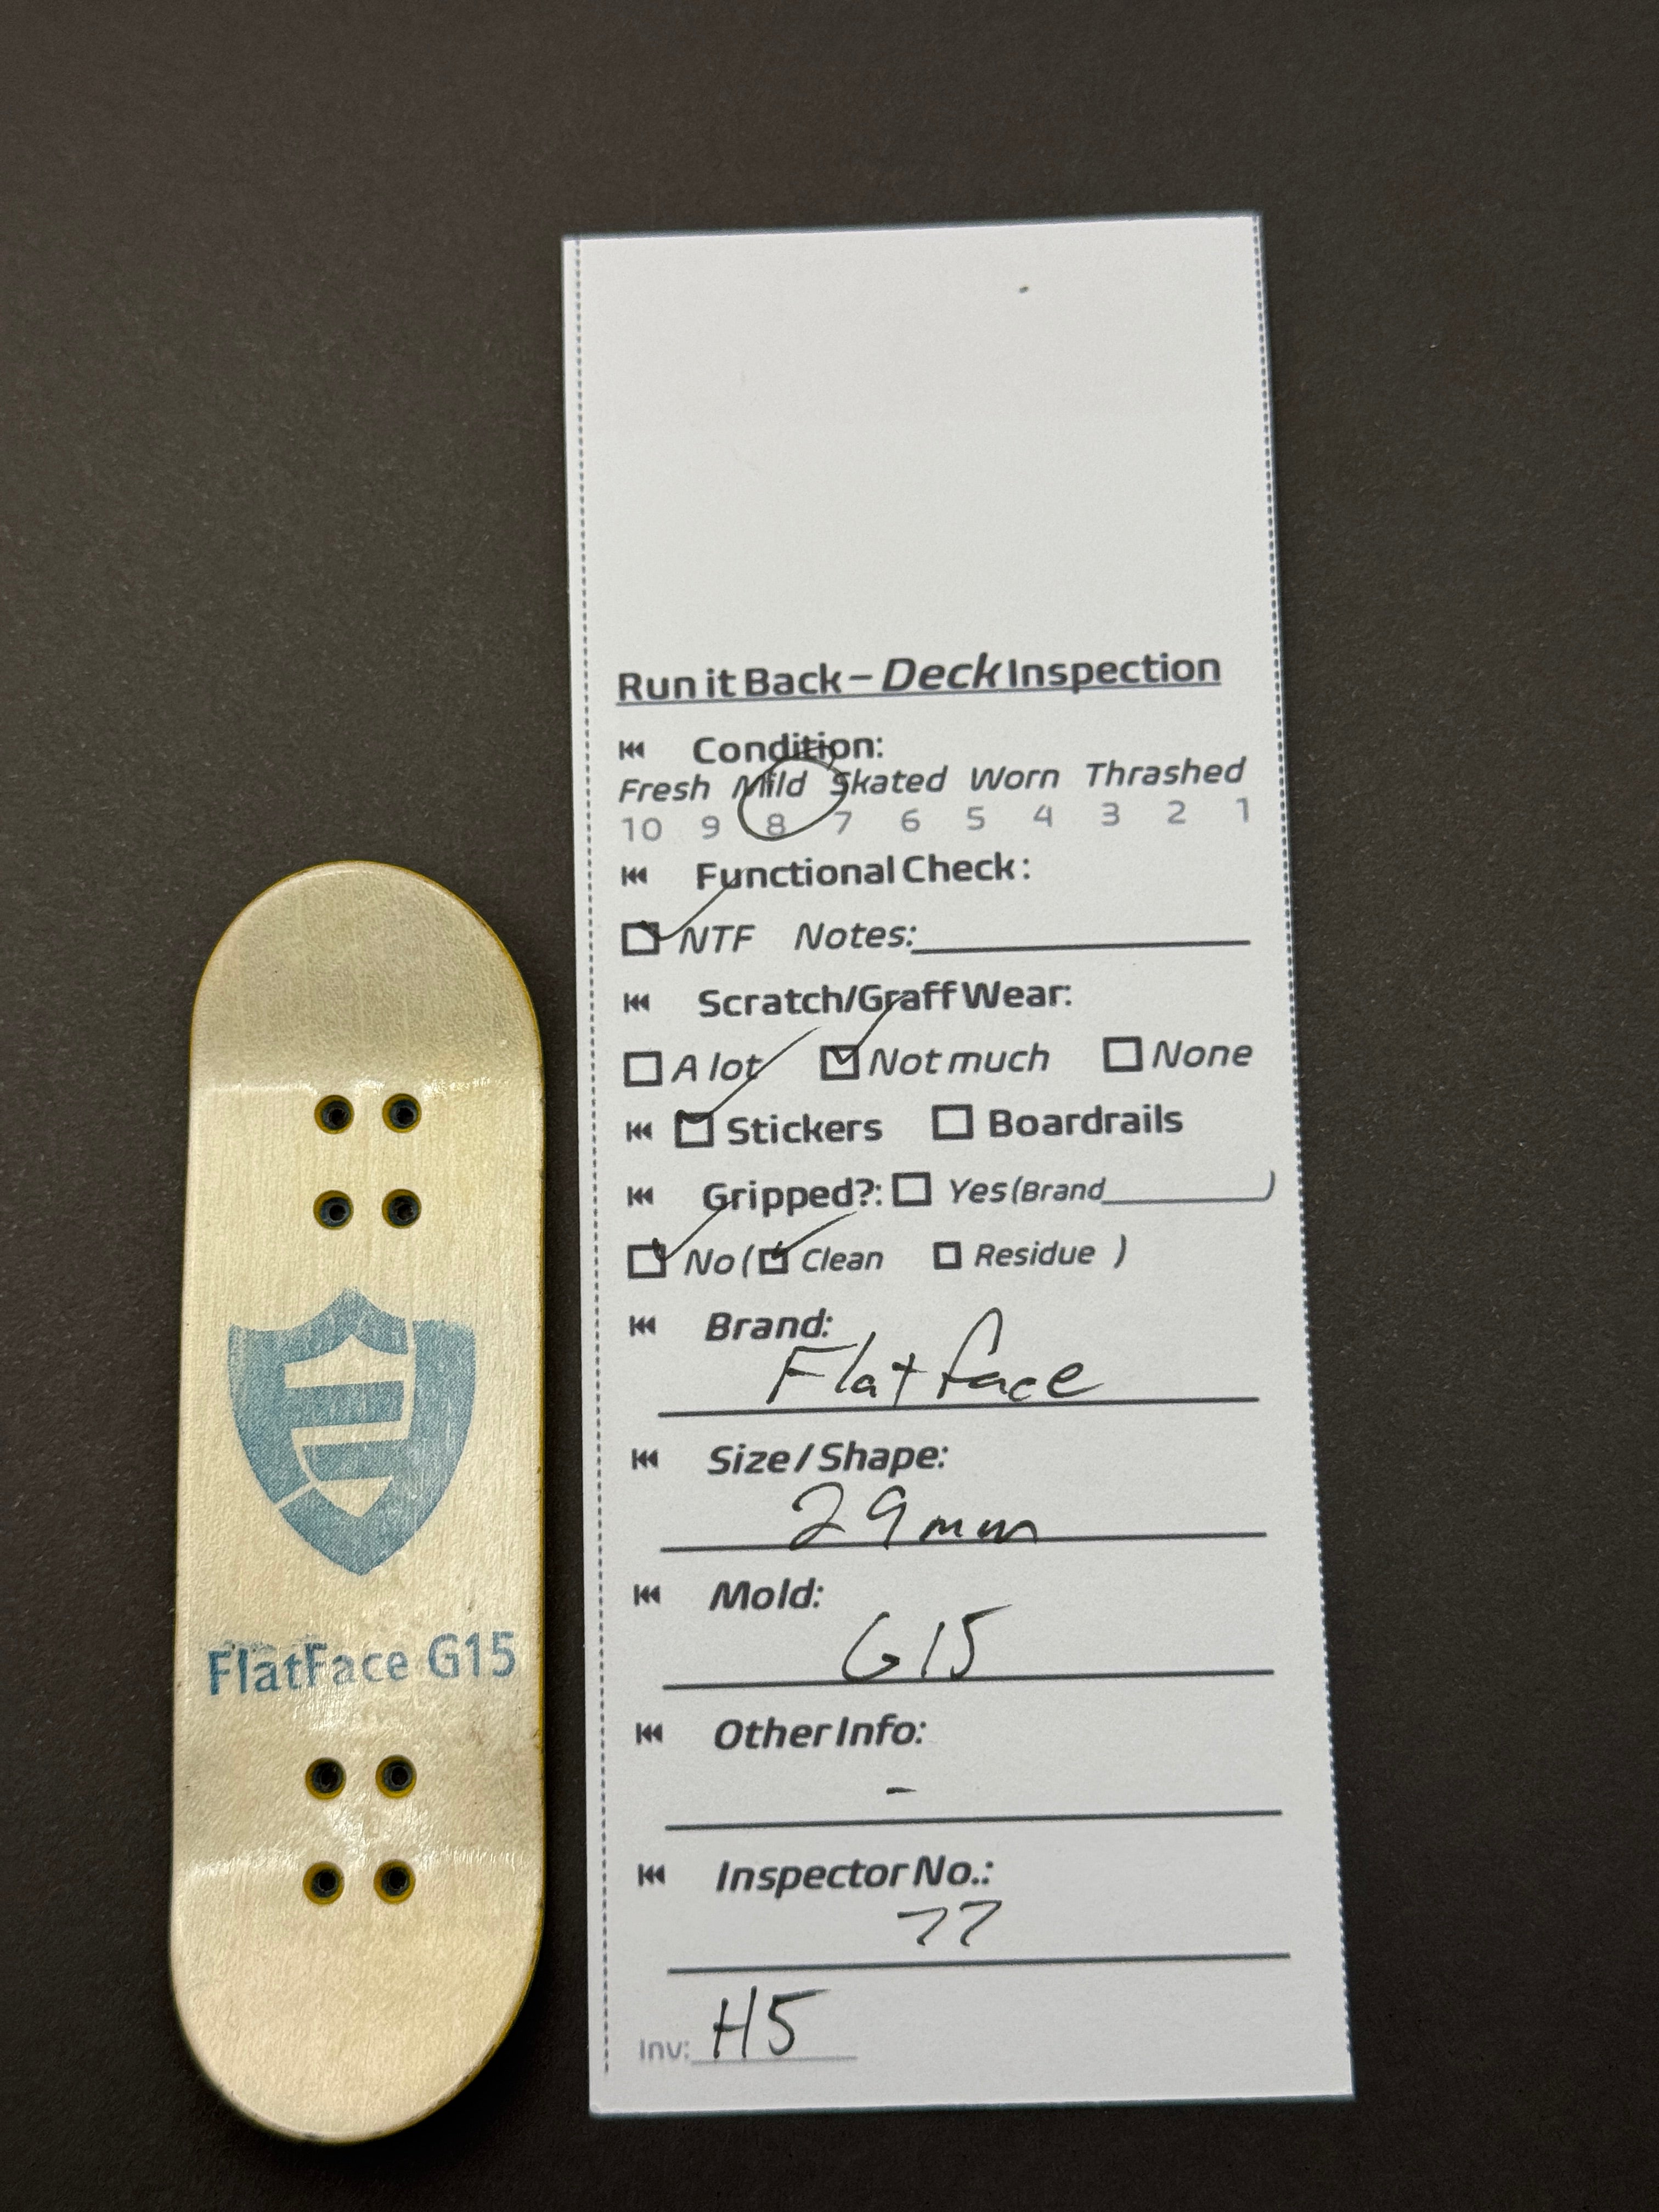 Run it Back – Deck Inspection
Condition:
Fresh Mild Skated Worn Thrashed
10 9 8 7 6 5 4 3 2 1
Functional Check:
NTF Notes:
Scratch/Graff Wear:
A lot Not much None
Stickers Boardrails
Gripped?: Yes (Brand )
No ( Clean Residue )
Brand:
Flatface
Size / Shape:
29mm
Mold:
G15
Other Info:
-
Inspector No.:
77
Inv: H5
FlatFace G15